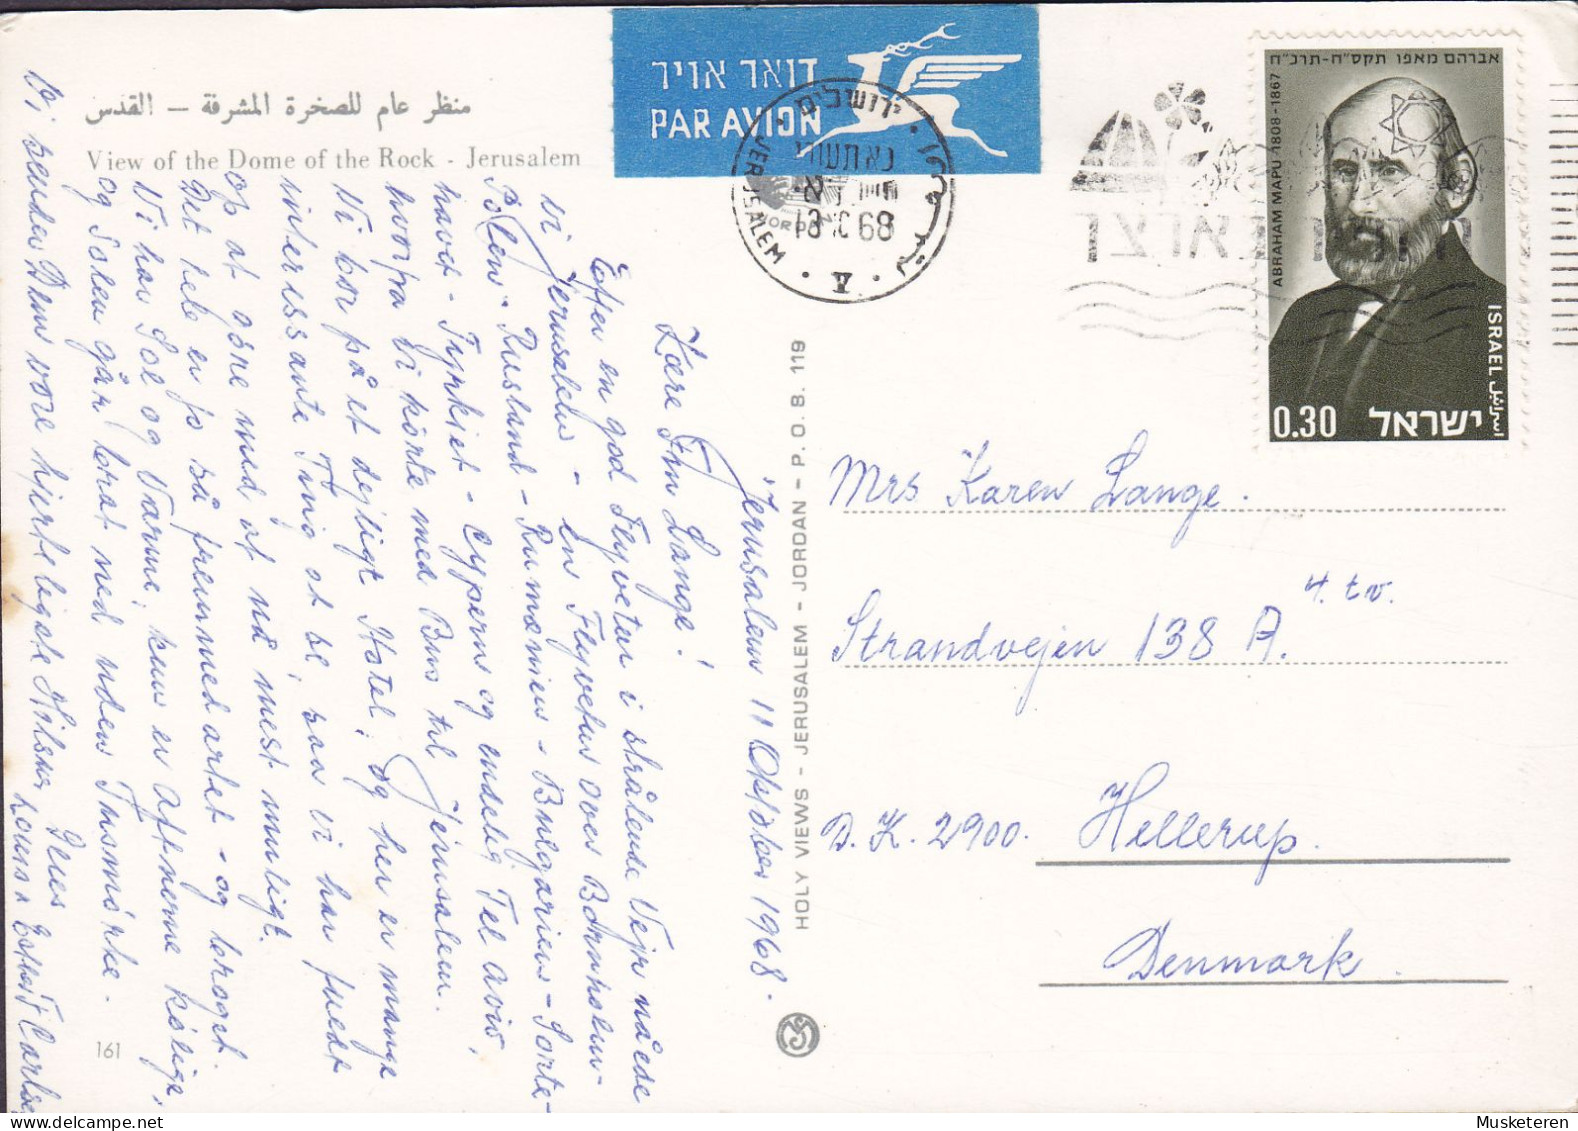 منظر عام للصخرة المشرفة – القدس
View of the Dome of the Rock - Jerusalem
דואר אויר
PAR AVION
ירושלים
JERUSALEM
13 X 68
V
אברהם מאפו תקס"ח-תרכ"ח
ABRAHAM MAPU 1808-1867
ISRAEL اسرائيل
0.30 ישראל
HOLY VIEWS - JERUSALEM - JORDAN - P. O. B. 119
161
Jerusalem 11 Oktober 1968.
Kære Fru Lange!
Efter en god Flyvetur i strålende Vejr nåede
vi Jerusalem - en Flyvetur over Bornholm-
Polen - Rusland - Rumænien - Bulgarien - Sorte-
havet - Tyrkiet - Cypern og endelig Tel Aviv,
hvorfra vi körte med Bus til Jerusalem.
Vi bor på et dejligt Hotel, og her er mange
interessante Ting at se, som vi har fundet
op at gøre med at nå mest muligt.
Det hele er jo så fremmedartet - og broget.
Vi har Sol og Varme, kun er Aftnerne kølige,
og Solen går brat ned uden Tusmørke.
Vi sender Dem vore hjerteligste Hilsner
Deres
Louis &
Mrs Karen Lange.
Strandvejen 138 A. 4. tv.
D.K. 2900. Hellerup.
Denmark.
Musketeren @ delcampe.net